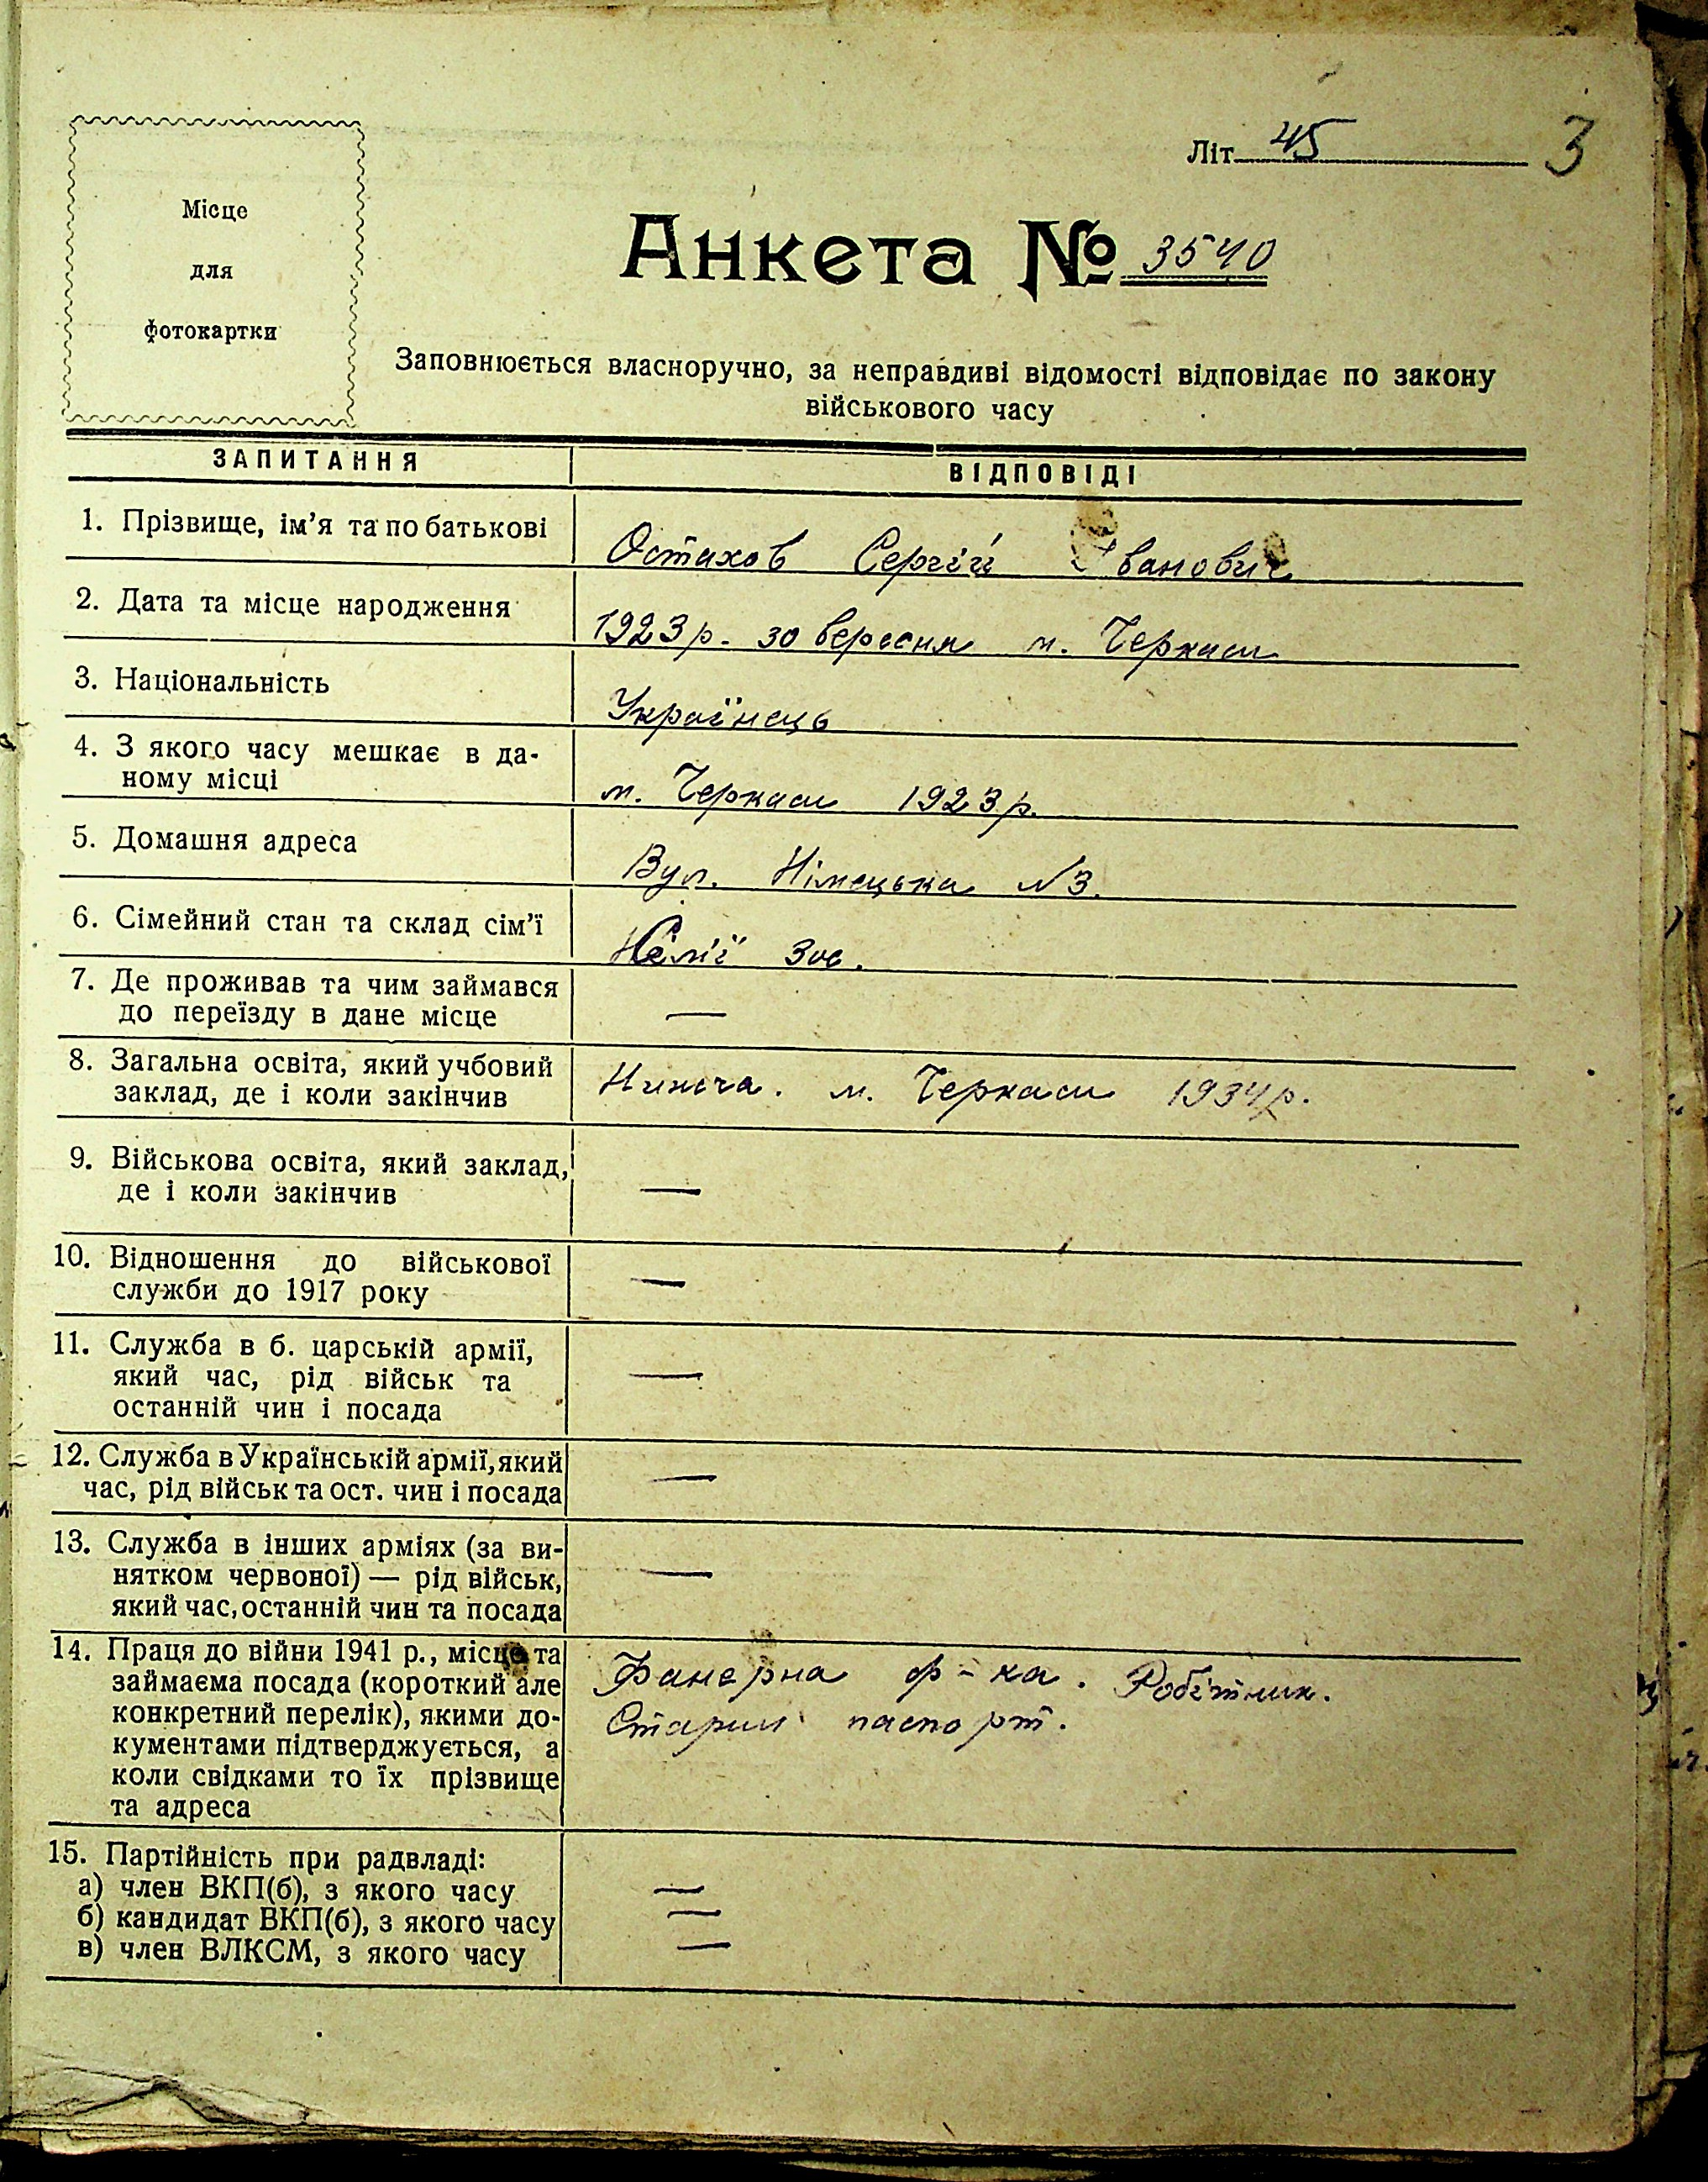 Літ 45 3
Місце
для
фотокартки
Анкета № 3540
Заповнюється власноручно, за неправдиві відомості відповідає по закону
військового часу
ЗАПИТАННЯ ВІДПОВІДІ
1. Прізвище, ім'я та по батькові Остахов Сергій Іванович
2. Дата та місце народження 1923 р. 30 вересня м. Черкаси
3. Національність Українець
4. З якого часу мешкає в да-
ному місці м. Черкаси 1923 р.
5. Домашня адреса Вул. Німецька №3.
6. Сімейний стан та склад сім'ї
7. Де проживав та чим займався
до переїзду в дане місце —
8. Загальна освіта, який учбовий
заклад, де і коли закінчив Нижча. м. Черкаси 1934 р.
9. Військова освіта, який заклад,
де і коли закінчив —
10. Відношення до військової
служби до 1917 року —
11. Служба в б. царській армії,
який час, рід військ та —
останній чин і посада
12. Служба в Українській армії, який —
час, рід військ та ост. чин і посада
13. Служба в інших арміях (за ви-
нятком червоної) — рід військ, —
який час, останній чин та посада
14. Праця до війни 1941 р., місце та Фанерна ф-ка. Робітник.
займаєма посада (короткий але Старий паспорт.
конкретний перелік), якими до-
кументами підтверджується, а
коли свідками то їх прізвище
та адреса
15. Партійність при радвладі:
а) член ВКП(б), з якого часу —
б) кандидат ВКП(б), з якого часу —
в) член ВЛКСМ, з якого часу —